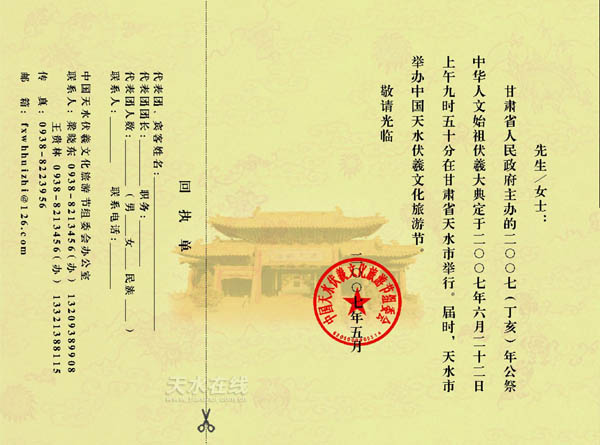 先生／女士：
甘肃省人民政府主办的二〇〇七（丁亥）年公祭
中华人文始祖伏羲大典定于二〇〇七年六月二十二日
上午九时五十分在甘肃省天水市举行。届时，天水市
举办中国天水伏羲文化旅游节。
敬请光临
二〇〇七年五月
中国天水伏羲文化旅游节组委会
回执单
代表团、宾客姓名：
代表团团长： 职务：
代表团人数： （男 女 民族 ）
联系人： 联系电话：
中国天水伏羲文化旅游节组委会办公室
联系人：梁晓东 0938-8213456(办) 13209389908
王贵林 0938-8213456(办) 13321388115
传 真：0938-8223956
邮 箱：fxwhhuizhi@126.com
天水在线